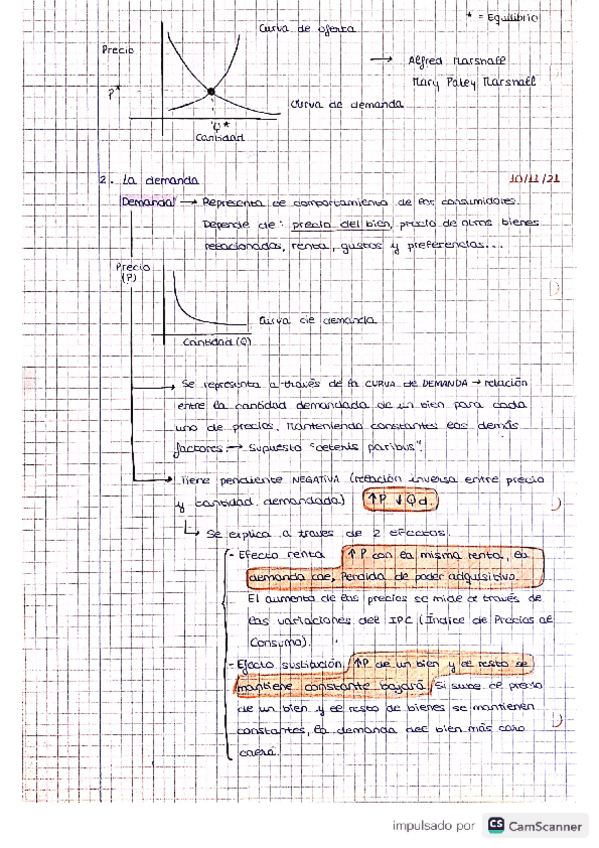 * = Equilibrio
Curva de oferta
Precio
→ Alfred Marshall
Mary Paley Marshall
P*
Curva de demanda
Q*
Cantidad
2. La demanda
10/11/21
Demanda → Representa el comportamiento de los consumidores.
Depende de: precio del bien, precio de otros bienes
relacionados, renta, gustos y preferencias...
Precio
(P)
Curva de demanda
Cantidad (Q)
Se representa a través de la CURVA de DEMANDA → relación
entre la cantidad demandada de un bien para cada
uno de precios. Manteniendo constantes los demás
factores. → Supuesto "ceteris paribus".
Tiene pendiente NEGATIVA (relación inversa entre precio
y cantidad demandada) ↑P ↓Qd.
Se explica a traves de 2 efectos.
- Efecto renta ↑P con la misma renta, la
demanda cae, Perdida de poder adquisitivo.
El aumento de los precios se mide a través de
las variaciones del IPC (Índice de Precios al
Consumo).
- Efecto sustitución ↑P de un bien y el resto se
mantiene constante bajará. Si sube el precio
de un bien y el resto de bienes se mantienen
constantes, la demanda del bien más caro
caerá.
impulsado por CS CamScanner